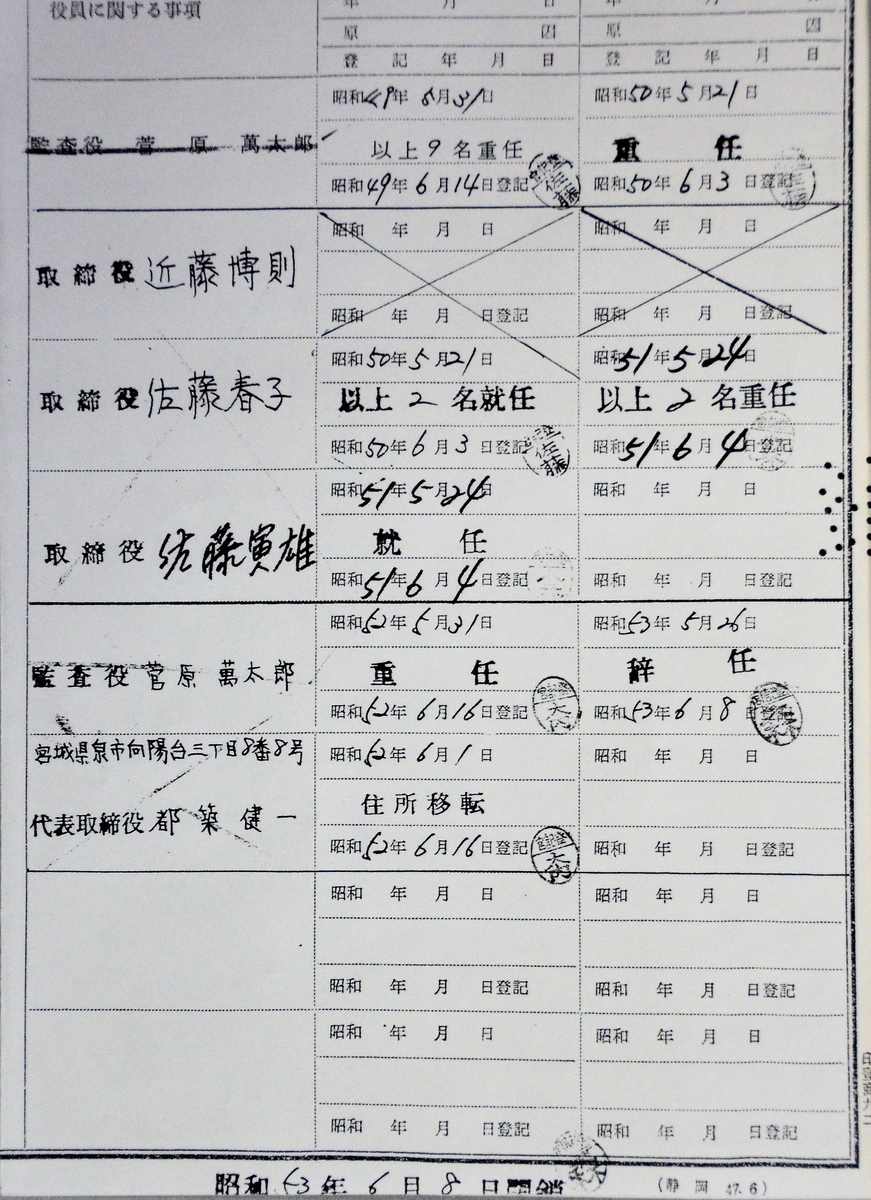 役員に関する事項
年 月 日
原 因
登 記 年 月 日
年 月 日
原 因
登 記 年 月 日
監査役 菅原 萬太郎
昭和49年5月31日
以上9名重任
昭和49年6月14日登記
佐藤
昭和50年5月21日
重任
昭和50年6月3日登記
取締役 近藤博則
昭和 年 月 日
昭和 年 月 日登記
昭和 年 月 日
昭和 年 月 日登記
取締役 佐藤春子
昭和50年5月21日
以上2名就任
昭和50年6月3日登記
佐藤
昭和51年5月24日
以上2名重任
昭和51年6月4日登記
取締役 佐藤寅雄
昭和51年5月24日
就任
昭和51年6月4日登記
昭和 年 月 日
昭和 年 月 日登記
監査役 菅原 萬太郎
昭和52年5月31日
重任
昭和52年6月16日登記
大内
昭和53年5月26日
辞任
昭和53年6月8日登記
宮城県泉市向陽台三丁目8番8号
代表取締役 都築健一
昭和52年6月1日
住所移転
昭和52年6月16日登記
大内
昭和 年 月 日
昭和 年 月 日登記
昭和 年 月 日
昭和 年 月 日登記
昭和 年 月 日
昭和 年 月 日登記
昭和 年 月 日
昭和 年 月 日登記
昭和 年 月 日
昭和 年 月 日登記
昭和53年6月8日閉鎖
(静岡 47.6)